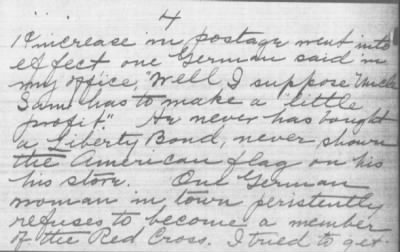 4
1¢ increase in postage went into
effect one German said in
my office, "Well I suppose Uncle
Sam has to make a "little
profit." He never has bought
a Liberty Bond, never shown
the American flag on his
his store. One German
woman in town persistently
refuses to become a member
of the Red Cross. I tried to get